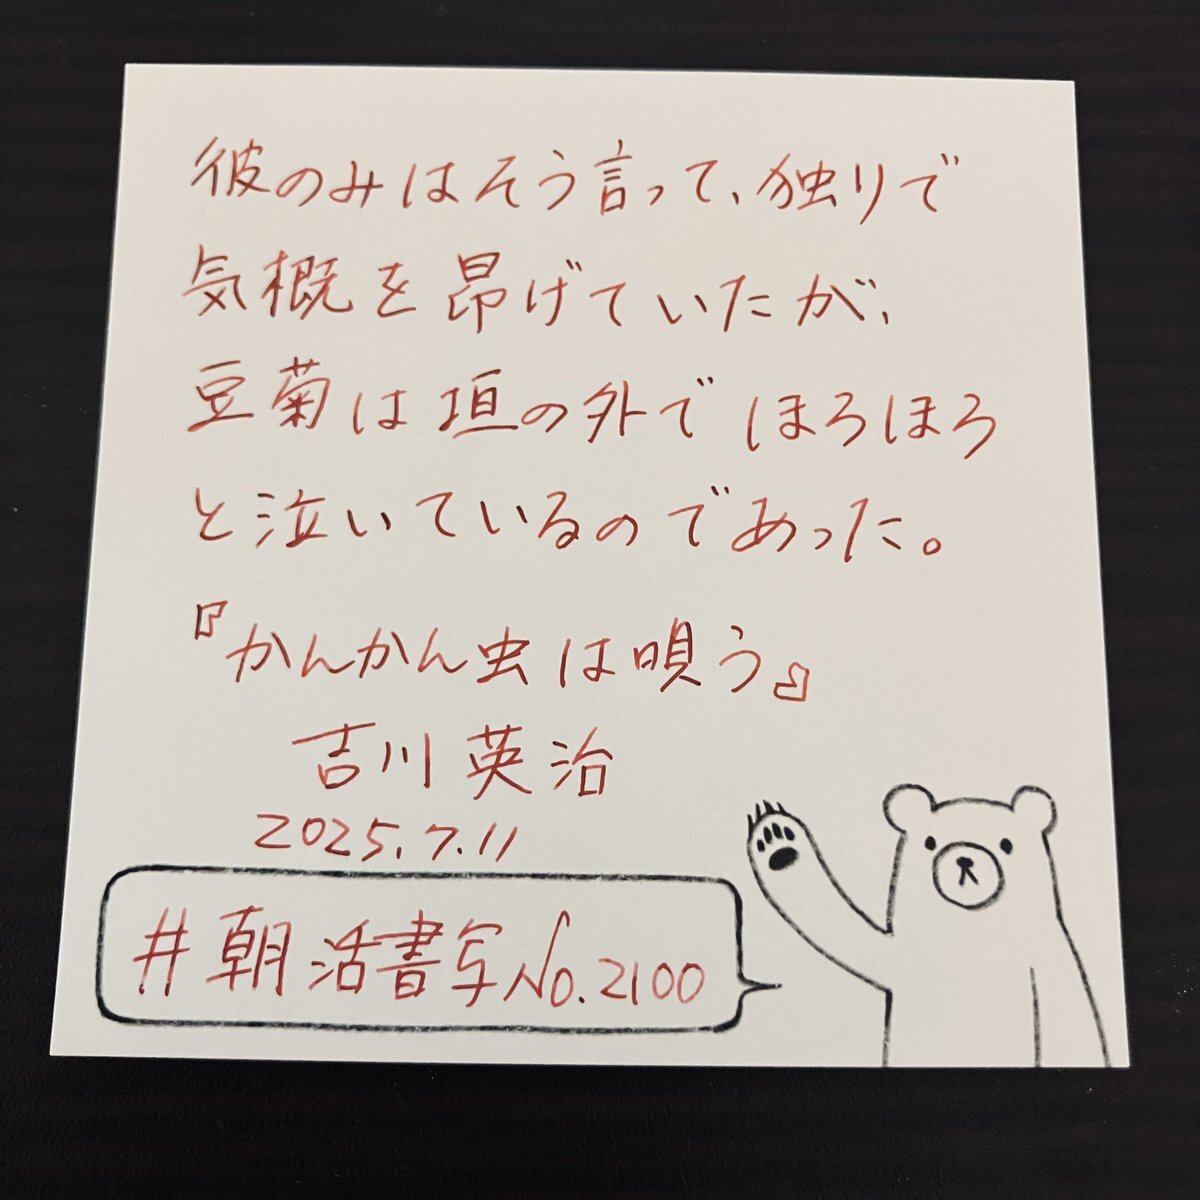 彼のみはそう言って、独りで
気概を昂げていたが、
豆菊は垣の外でほろほろ
と泣いているのであった。
『かんかん虫は唄う』
吉川英治
2025.7.11
#朝活書写No.2100